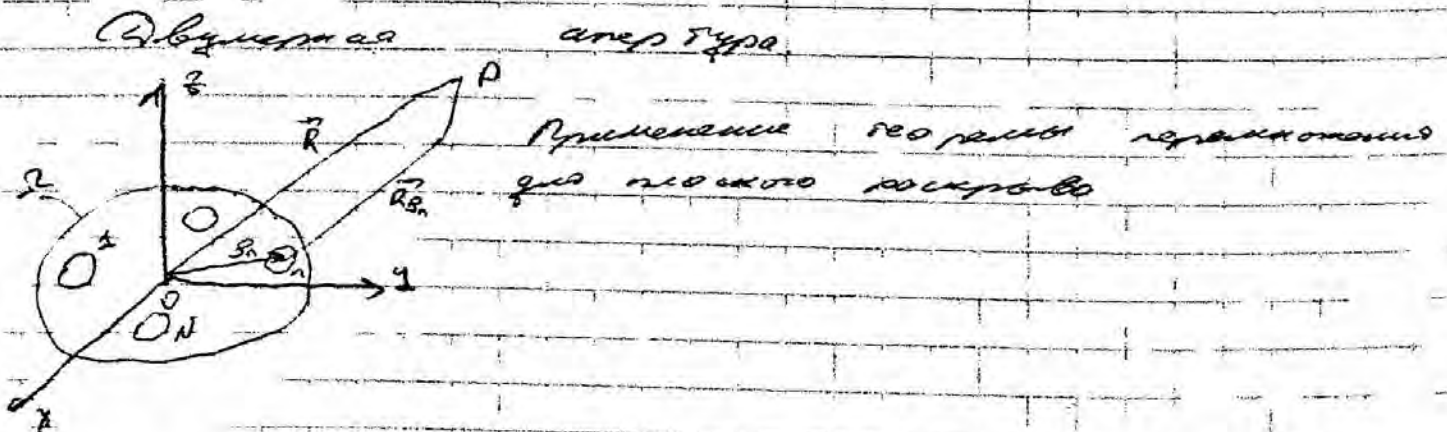 Двумерная апертура
z
P
R
Применение теоремы перемножения
для плоского раскрыва
Ω
R βn
1
βn
n
y
0
N
x